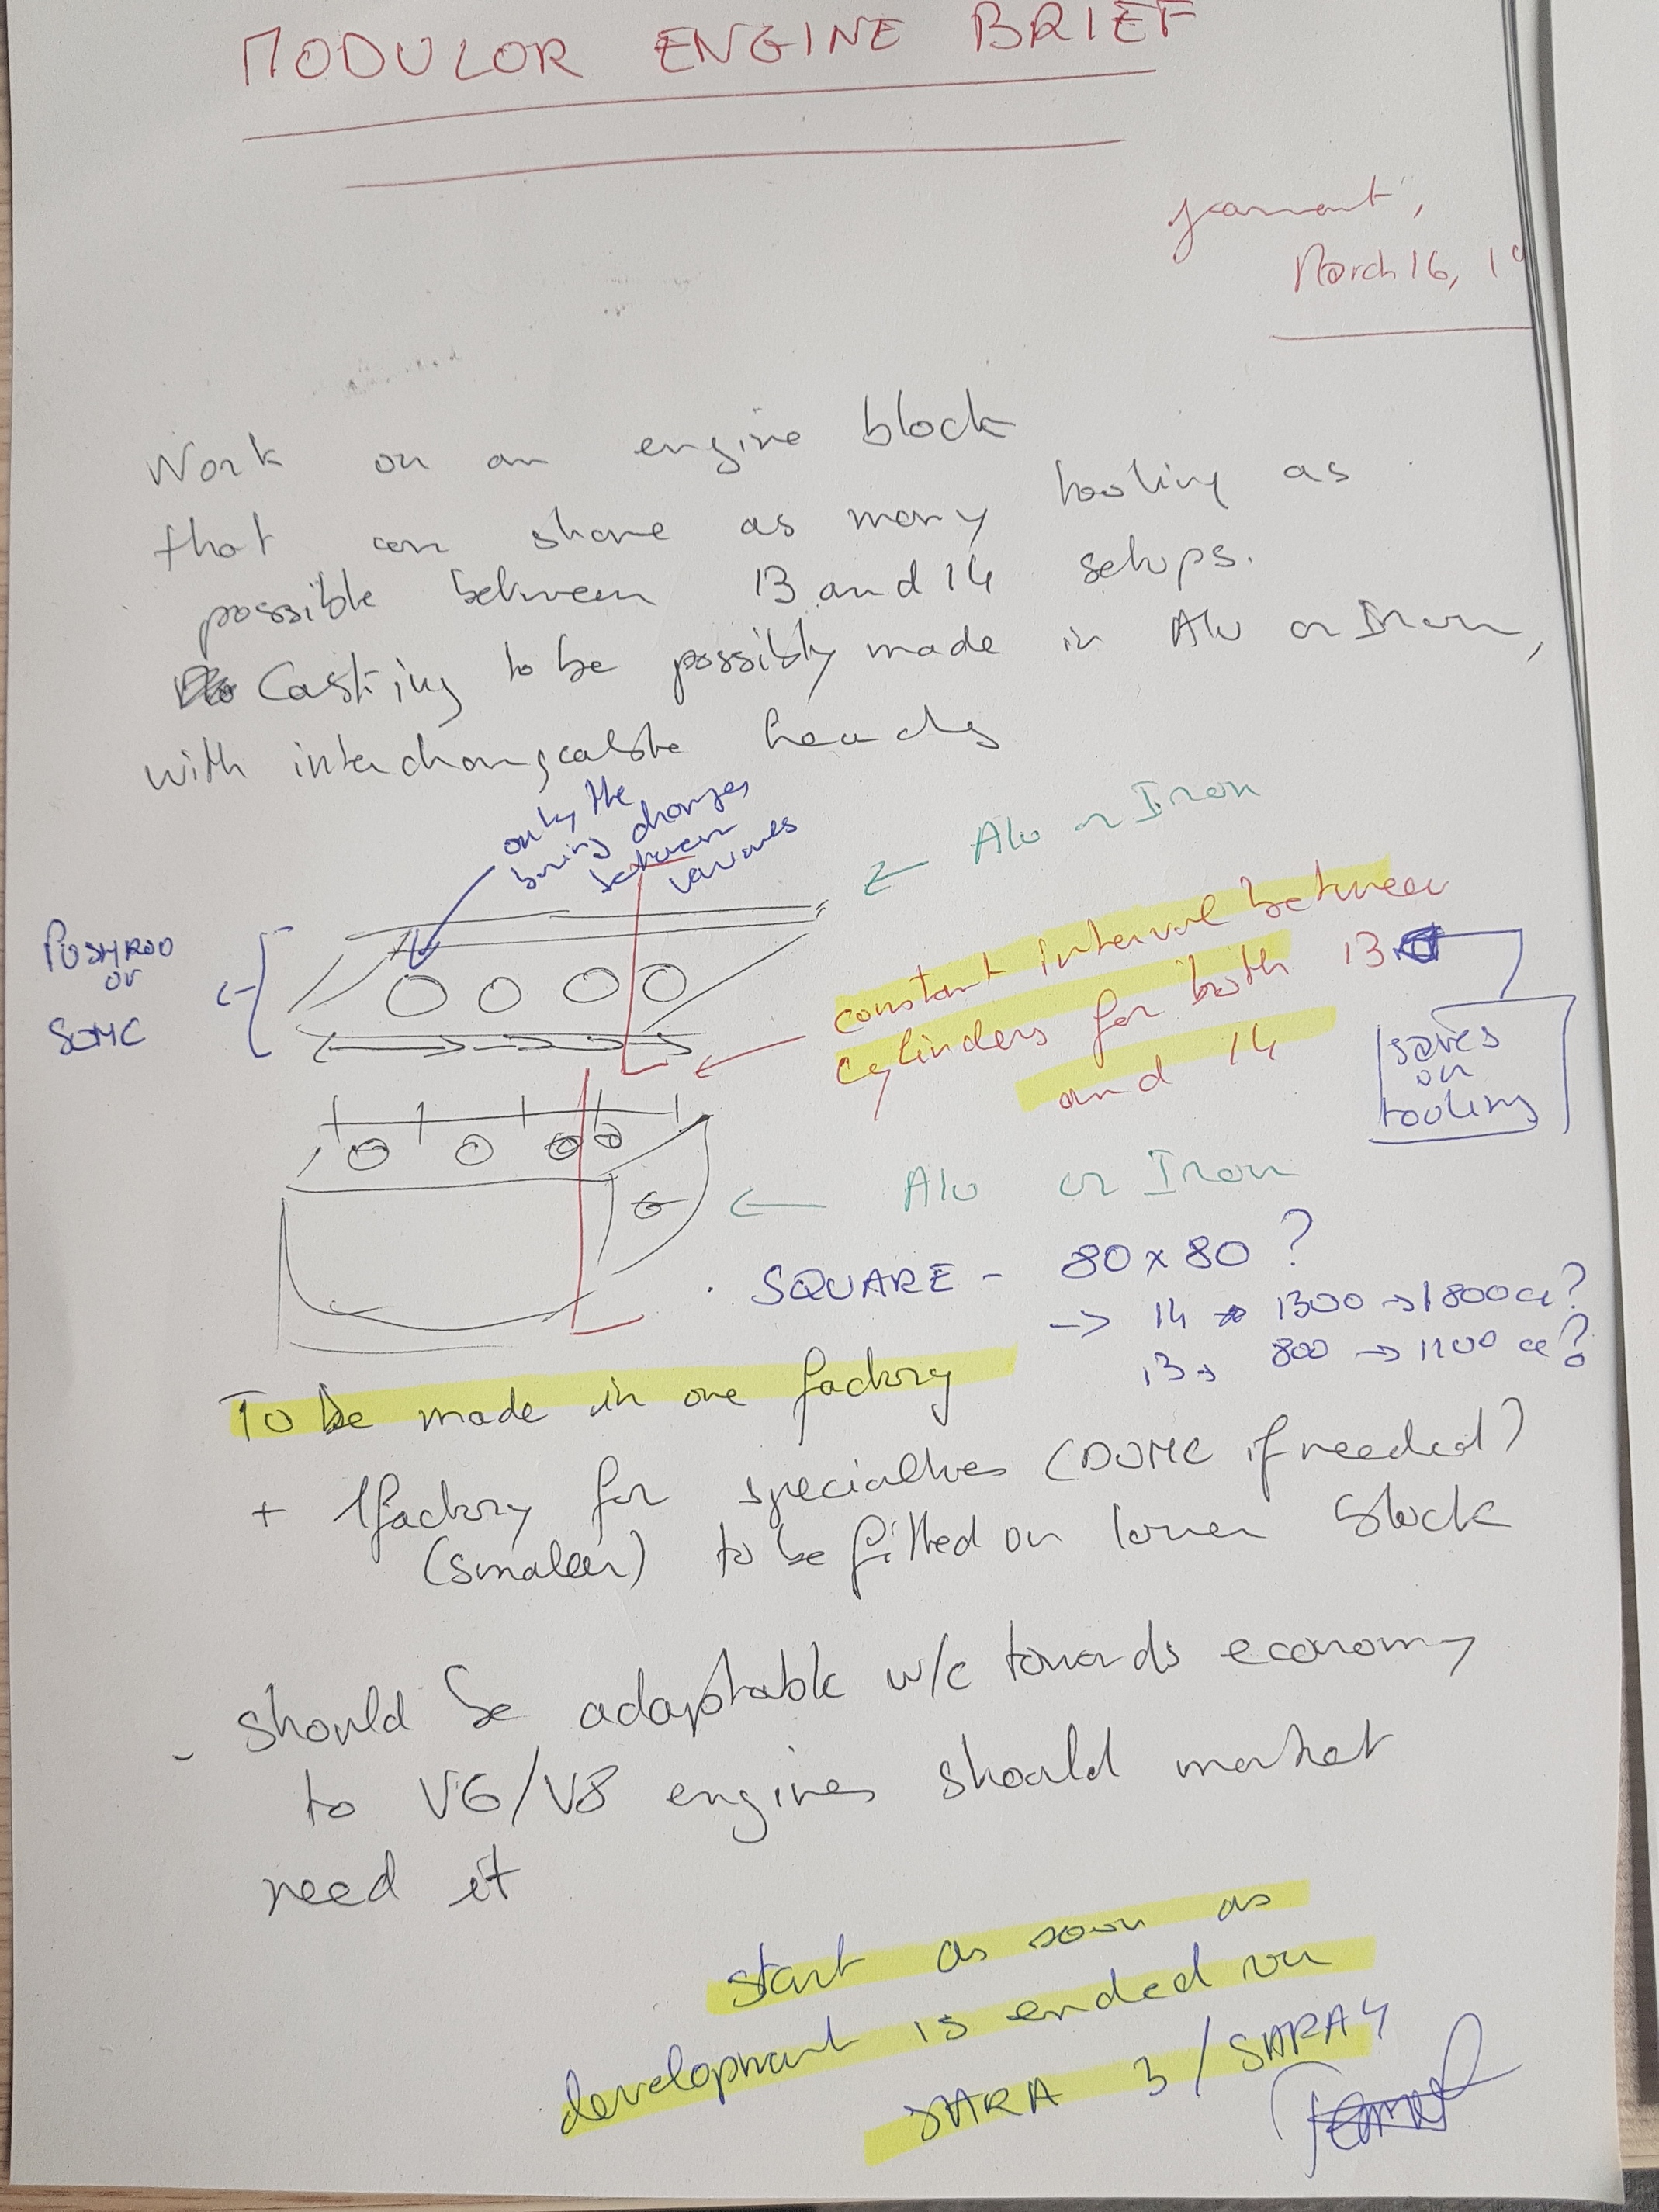 MODULOR ENGINE BRIEF
March 16, 19
Work on an engine block
that can share as many tooling as
possible between I3 and I4 setups.
Casting to be possibly made in Alu or Iron,
with interchangeable heads
only the
boring changes
between
variances
← Alu or Iron
PUSHROD
or
SOHC
constant interval between
cylinders for both I3
and I4
saves
on
tooling
← Alu or Iron
. SQUARE - 80 x 80 ?
→ I4 → 1300 → 1800 cc?
I3 → 800 → 1200 cc?
To be made in one factory
+ 1 factory for specialties (DOHC if needed)
(smaller) to be fitted on lower block
- should be adaptable w/c towards economy
to V6/V8 engines should market
need it
start as soon as
development is ended on
SARA 3 / SARA 4